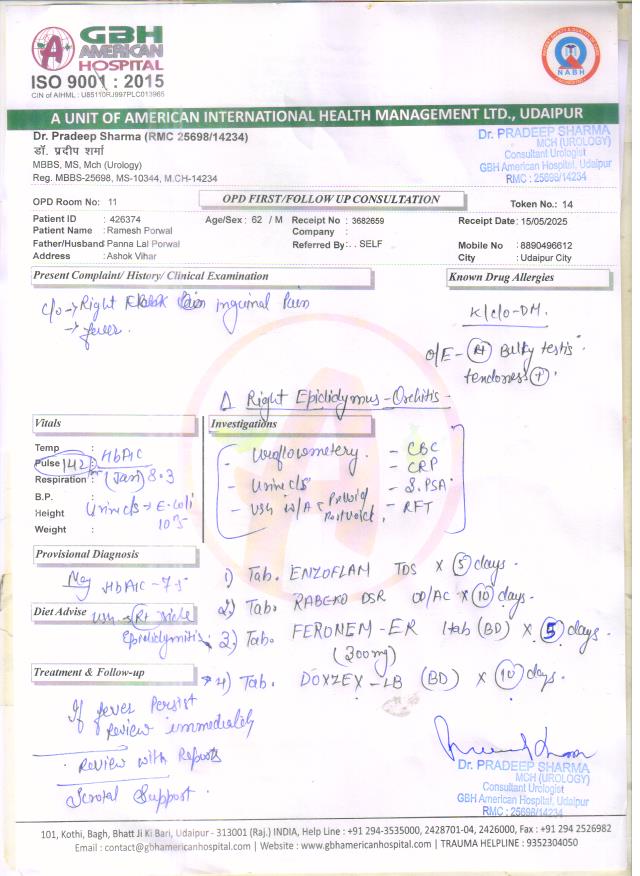 GBH
AMERICAN
HOSPITAL
ISO 9001 : 2015
CIN of AIHML : U85110RJ997PLC013965
NABH
A UNIT OF AMERICAN INTERNATIONAL HEALTH MANAGEMENT LTD., UDAIPUR
Dr. Pradeep Sharma (RMC 25698/14234)
डॉ. प्रदीप शर्मा
MBBS, MS, Mch (Urology)
Reg. MBBS-25698, MS-10344, M.CH-14234
Dr. PRADEEP SHARMA
MCH (UROLOGY)
Consultant Urologist
GBH American Hospital, Udaipur
RMC : 25698/14234
OPD Room No: 11
OPD FIRST/FOLLOW UP CONSULTATION
Token No.: 14
Patient ID : 426374 Age/Sex : 62 / M Receipt No : 3682659 Receipt Date: 15/05/2025
Patient Name : Ramesh Porwal Company :
Father/Husband Panna Lal Porwal Referred By: . . SELF Mobile No : 8890496612
Address : Ashok Vihar City : Udaipur City
Present Complaint/ History/ Clinical Examination
Known Drug Allergies
c/o → Right inguinal Pain
→ fever.
K/c/o-DM.
O/E - Rt Bulky testis
tenderness (+)
Δ Right Epididymus-Orchitis -
Vitals
Investigations
Temp :
Pulse 142 :
Respiration :
B.P. :
Height :
Weight :
HbA1C
(Jan) 8.3
Urine c/s → E-coli
10^5
- Uroflowmetery. - CBC
- Urine c/s - CRP
- USG w/A c Prevoid Postvoid, - S.PSA
- RFT
Provisional Diagnosis
May HbA1C - 7.5
Diet Advise
USG → Rt side
Epididymitis
1) Tab. ENZOFLAM TDS x 5 days.
2) Tab. RABEKO DSR OD/AC x 10 days.
3) Tab. FERONEM-ER 1tab (BD) x 5 days.
(300mg)
4) Tab. DOXZEX-LB (BD) x 10 days.
Treatment & Follow-up
If fever Persist
Review immediately
. Review with Reports
Scrotal Support .
Dr. PRADEEP SHARMA
MCH (UROLOGY)
Consultant Urologist
GBH American Hospital, Udaipur
RMC : 25698/14234
101, Kothi, Bagh, Bhatt Ji Ki Bari, Udaipur - 313001 (Raj.) INDIA, Help Line : +91 294-3535000, 2428701-04, 2426000, Fax : +91 294 2526982
Email : contact@gbhamericanhospital.com | Website : www.gbhamericanhospital.com | TRAUMA HELPLINE : 9352304050